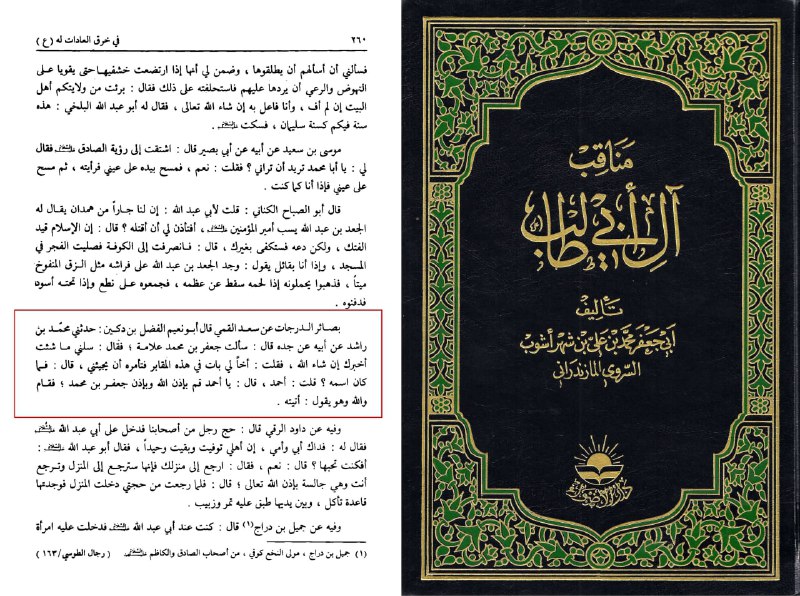 ٢٦٠
في خرق العادات له (ع)
فسألني أن أسألهم أن يطلقوها ، وضمن لي أنها إذا ارتضعت خشفيهـا حتى يقويا عـلى
النهوض والرعي أن يردها عليهم فاستحلفته على ذلك فقال : برئت من ولايتكم أهل
البيت إن لم أف ، وأنا فاعل به إن شاء الله تعالى ، فقال له أبو عبد الله البلخي : هذه
سنة فيكم كسنة سليمان ، فسكت .
موسى بن سعيد عن أبيه عن أبي بصير قال : اشتقت إلى رؤية الصادق فقال
لي : يا أبا محمد تريد أن تراني ؟ فقلت : نعم ، فمسح بيده على عيني فرأيته ، ثم مسح
على عيني فإذا أنا كما كنت .
قال أبو الصباح الكناني : قلت لأبي عبد الله : إن لنا جـاراً من همدان يقـال له
الجعد بن عبد الله يسب أمير المؤمنين ، أفتأذن لي أن أقتله ؟ قال : إن الإسلام قيد
الفتك ، ولكن دعه فستكفى بغيرك ، قال : فـانصرفت إلى الكوفـة فصليت الفجر في
المسجد ، وإذا أنا بقائل يقول : وجد الجعد بن عبد الله على فراشه مثل الـزق المنفوخ
ميتاً ، فذهبوا يحملونه إذا لحمه سقط عن عظمه ، فجمعوه على نطع وإذا تحتـه أسود
فدفنوه .
بصائر الـدرجات عن سعـد القمي قال أبـو نعيم الفضل بن دكـين : حدثني محمّـد بن
راشد عن أبيه عن جده قال : سألت جعفر بن محمد علامة ؛ فقال : سلني مـا شئت
أخبرك إن شاء الله ، فقلت : أخاً لي بات في هذه المقابر فتأمره أن يجيئني ، قـال : فـما
كان اسمه ؟ قلت : أحمد ، قال : يا أحمد قم بإذن الله وبإذن جعفـر بن محمد ؛ فقـام
والله وهو يقول : أتيته .
وفيه عن داود الرقي قال : حج رجل من أصحابنا فدخل على أبي عبد الله
فقال له : فداك أبي وأمي ، إن أهلي توفيت وبقيت وحيداً ، فقال أبو عبد الله :
أفكنت تحبها ؟ قال : نعم ، فقال : ارجع إلى منزلك فإنها سترجع إلى المنزل وتـرجع
أنت وهي جالسة بإذن الله تعالى ؛ قال : فلما رجعت من حجتي دخلت المنزل فوجدتها
قاعدة تأكل ، وبين يديها طبق عليه تمر وزبيب .
وفيه عن جميل بن دراج (١) قال : كنت عند أبي عبد الله فدخلت عليه امرأة
(١) جميل بن دراج ، مولى النخع كوفي ، من أصحاب الصادق والكاظم ( رجال الطوسي / ١٦٣ )
مناقب
آل أبي طالب
تأليف
أبي جعفر محمد بن علي بن شهر آشوب
السروي المازندراني
دار الأضواء